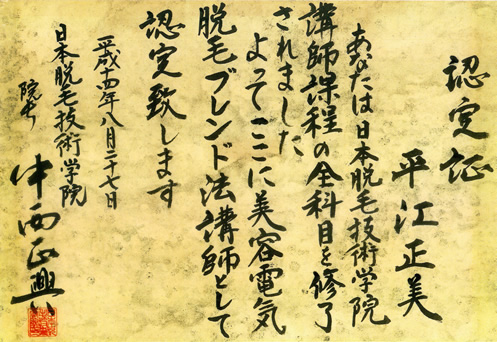 認定証
平江正美
あなたは日本脱毛技術学院
講師課程の全科目を修了
されました
よってここに美容電気
脱毛ブレンド法講師として
認定致します
平成十四年八月二十七日
日本脱毛技術学院
院長
中西正興